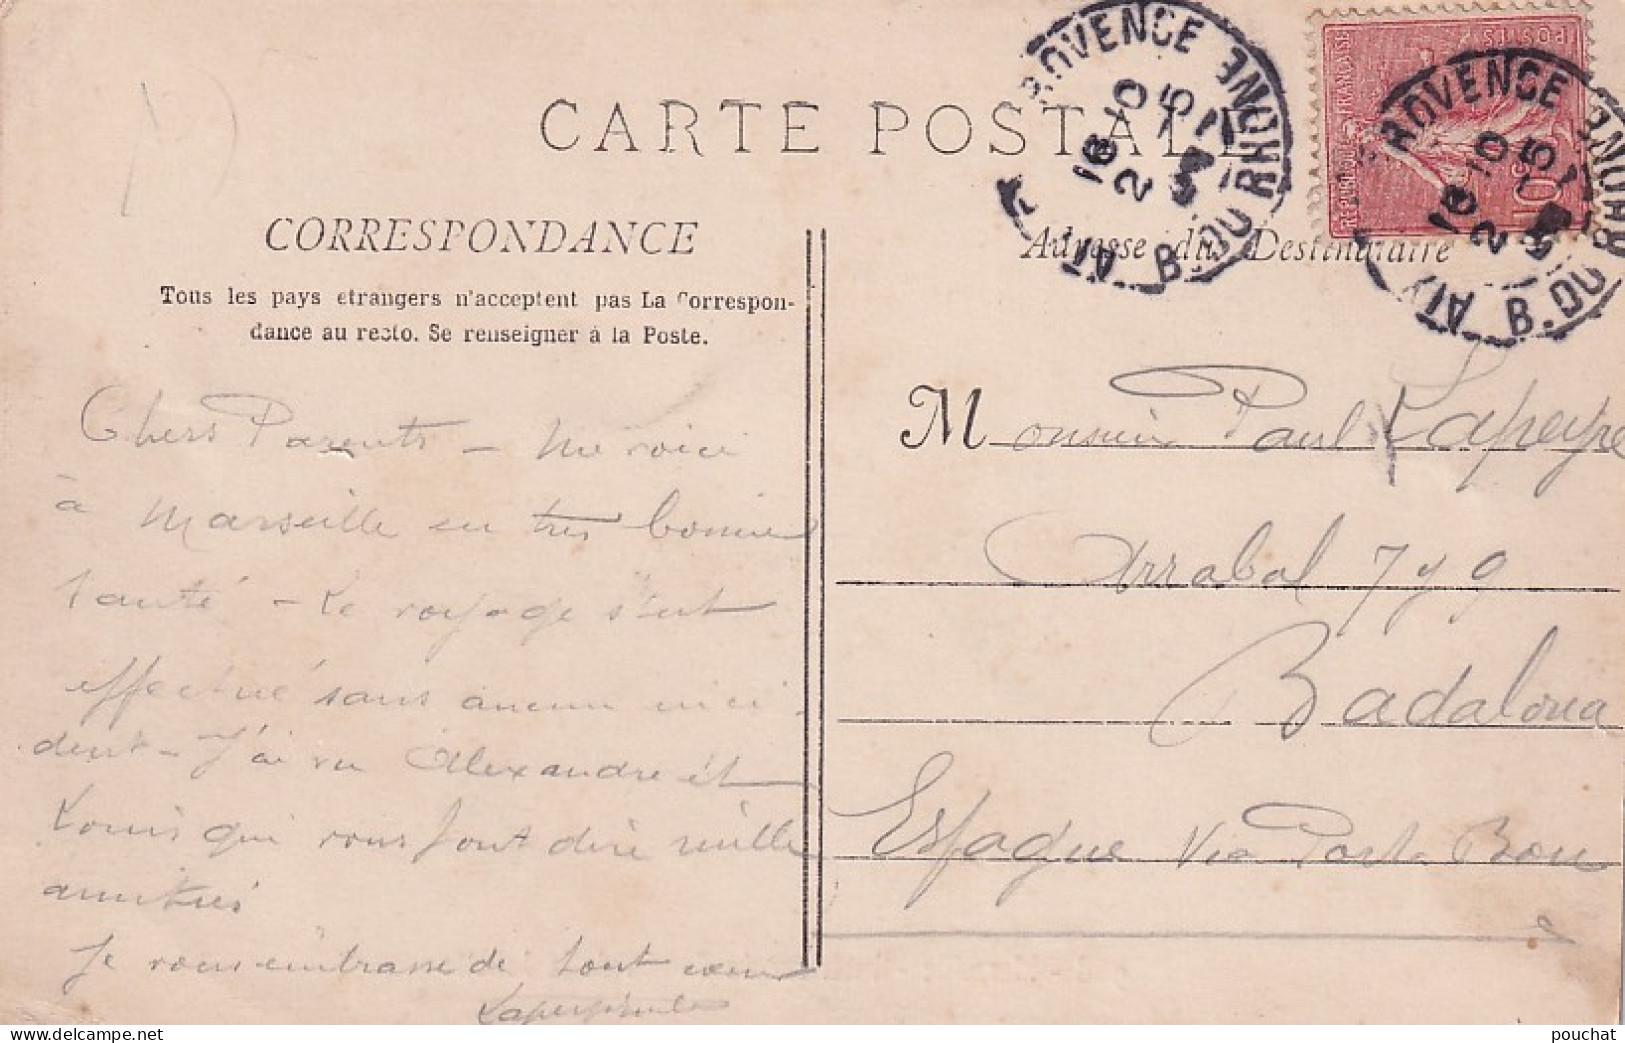 CARTE POSTALE
CORRESPONDANCE
Tous les pays etrangers n'acceptent pas La Correspon-
dance au recto. Se renseigner à la Poste.
Chers Parents - Me voici
à Marseille en très bonne
Santé - Le voyage s'est
effectué sans aucun inci
dent - J'ai vu Alexandre et
Louis qui vous font dire mille
amitiés
Je vous embrasse de tout coeur
Adresse du Destinataire
Monsieur Paul Lapeyre
Arrabal 7 y 9
Badalona
Espagne Via Port Bou
ROVENCE
AIX B. DU RHONE
16-10
2
15
POSTES
REPUBLIQUE FRANÇAISE
10
ROVENCE
AIX B. DU RHONE
16 10
2
15
pouchat